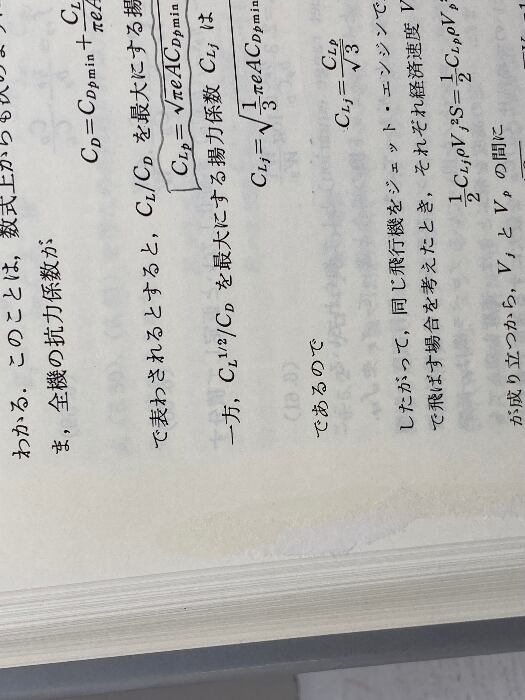 わかる．このことは，数式上からも次のよ
ま，全機の抗力係数が
C_D=C_{Dpmin}+\frac{C_L}{πeA}
で表わされるとすると，C_L/C_D を最大にする揚
C_{Lp}=\sqrt{πeAC_{Dpmin}}
一方，C_L^{1/2}/C_D を最大にする揚力係数 C_{Lj} は
C_{Lj}=\sqrt{\frac{1}{3}πeAC_{Dpmin}}
であるので
C_{Lj}=\frac{C_{Lp}}{\sqrt{3}}
したがって，同じ飛行機をジェット・エンジンで
で飛ばす場合を考えたとき，それぞれ経済速度 V
\frac{1}{2}C_{Lj}ρV_j^2S=\frac{1}{2}C_{Lp}ρV_p
が成り立つから，V_j と V_p の間に